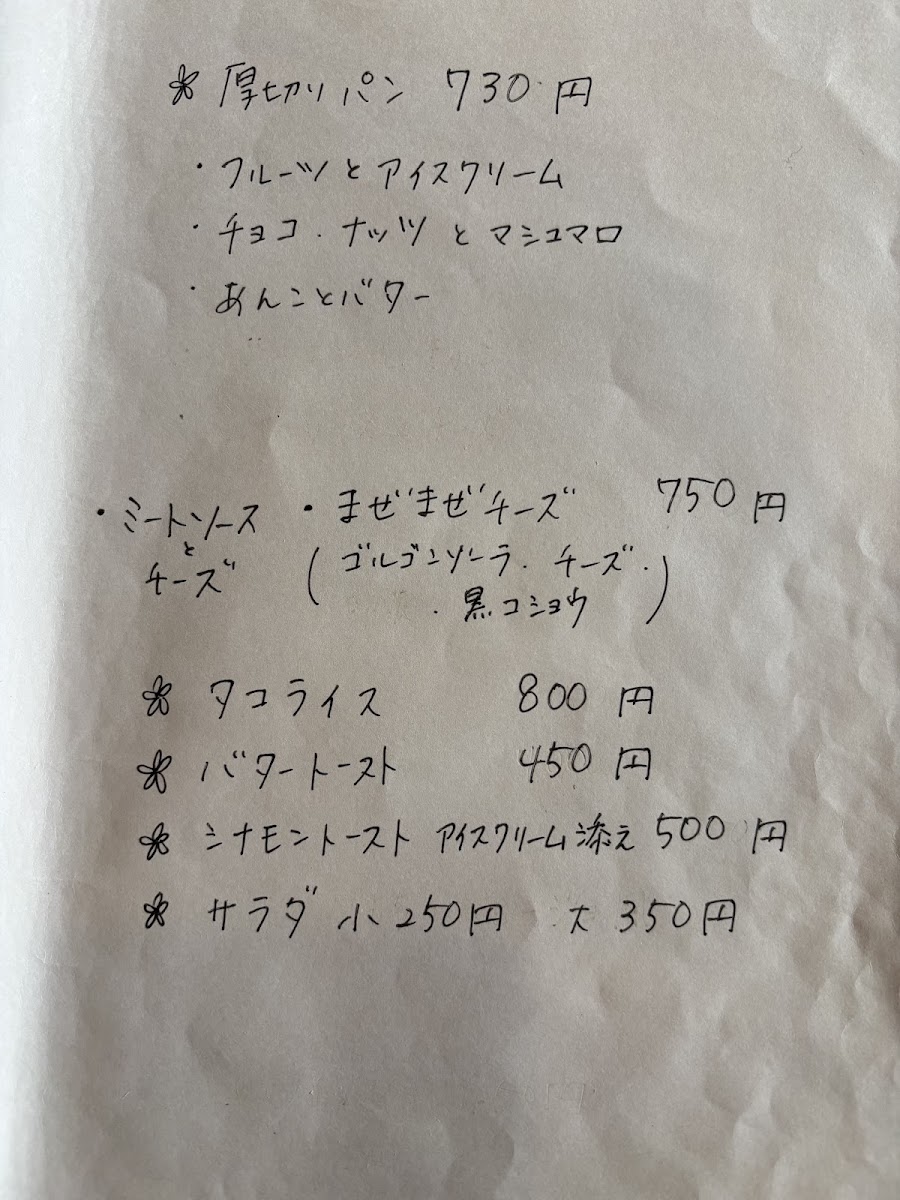 ❀ 厚切りパン 730円
・フルーツとアイスクリーム
・チョコ・ナッツとマシュマロ
・あんことバター
・ミートソース ・まぜまぜチーズ 750円
と
チーズ (ゴルゴンゾーラ・チーズ・
・黒コショウ)
❀ タコライス 800円
❀ バタートースト 450円
❀ シナモントースト アイスクリーム添え 500円
❀ サラダ 小250円 大350円